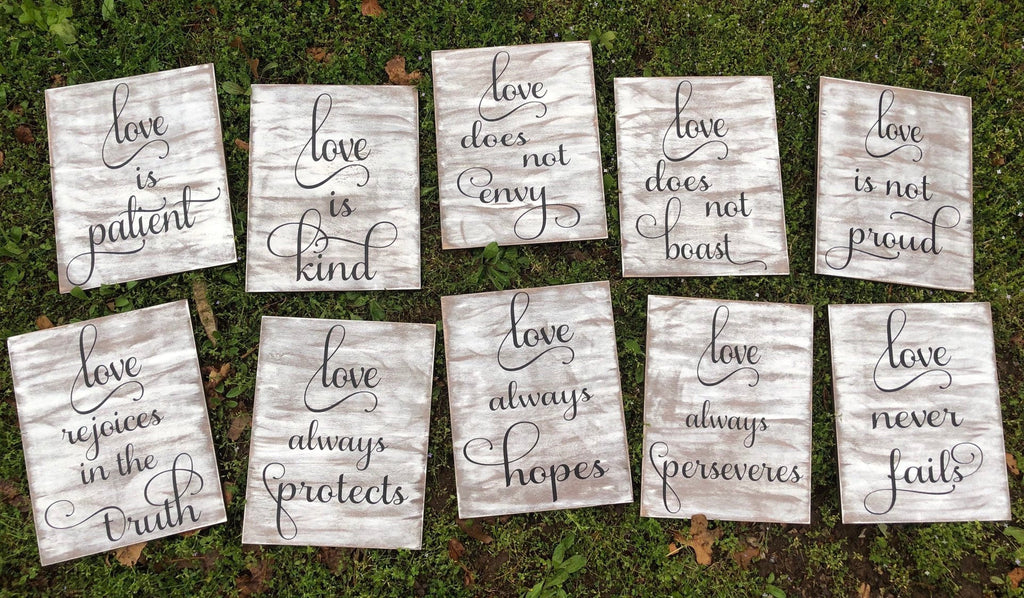 love
is
patient
love
is
kind
love
does
not
envy
love
does
not
boast
love
is not
proud
love
rejoices
in the
Truth
love
always
protects
love
always
hopes
love
always
perseveres
love
never
fails